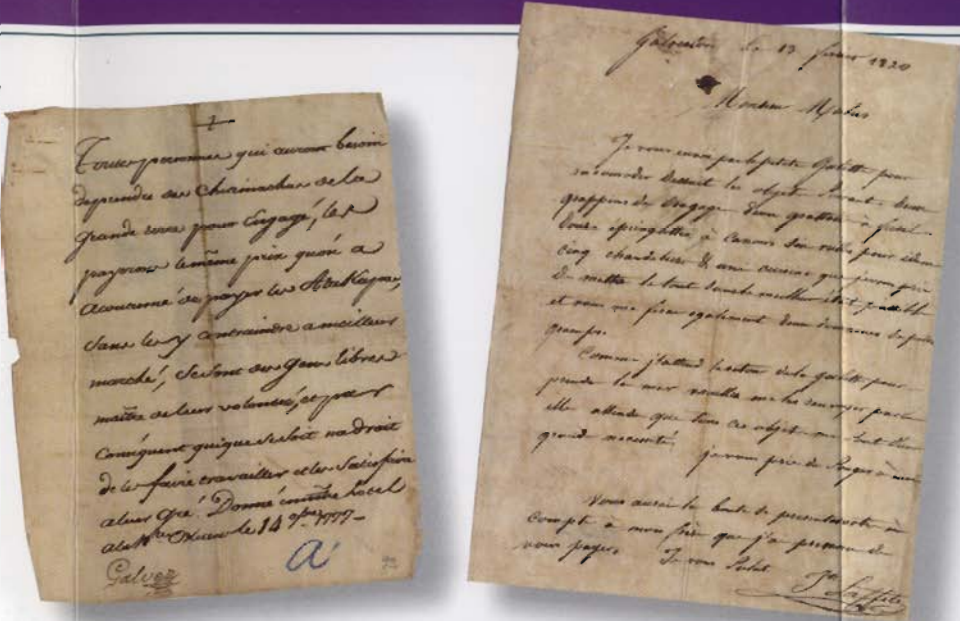 Toutes personnes qui auront besoin
de prendre des Chetimachas de la
grande terre pour Engagé, les
payeront le même prix qu'on a
acoutumé de payer les Atakapas,
sans les y contraindre a meilleur
marché, Se sont des Gens libres
maitre de leur volonté, et par
conséquent quique se soit na droit
de les faire travailler et les Satisfaire
a leur gré. Donné en nôtre hotel
a la Nlle Orleans le 14 1777
Galvez
a
Galveston le 13 1820
Monsieur
Je vous envoi par la petite Goelette pour
racomoder les objets Savoir deux
grappins un grattoir à fusil
à Canons des pour idem
cinq chandeliers & une cuisine que je vous prie
De mettre le tout dans le meilleur état possible
et vous me ferez egalement deux douzaines de petits
grampes.
Comme j'attend le retour de la goelette pour
prendre la mer veuillez me les renvoyer par
elle attendu que tous ces objets me sont d'un
grande necessité. je vous prie de
Vous aurez la bonté de presenter votre
compte à mon frère que j'ai de
vous payer. Je vous Salut
Jn Laffite